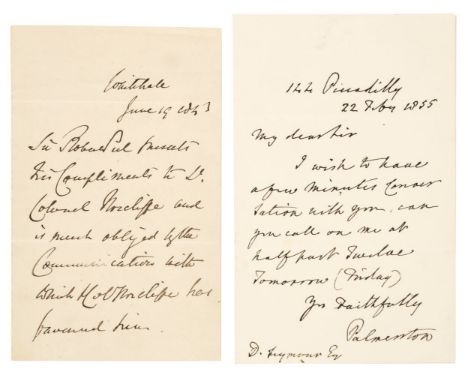 Whitehall
June 19 1843
Sir Robert Peel presents
his Compliments to Lt.
Colonel Norcliffe and
is much obliged by the
Communication with
which Col Norcliffe has
favoured him.
144 Piccadilly
22 Feby 1855
My dear Sir
I wish to have
a few minutes Conver
sation with you, can
you call on me at
half past Twelve
Tomorrow (Friday)
Yrs faithfully
Palmerston
D. Seymour Esq